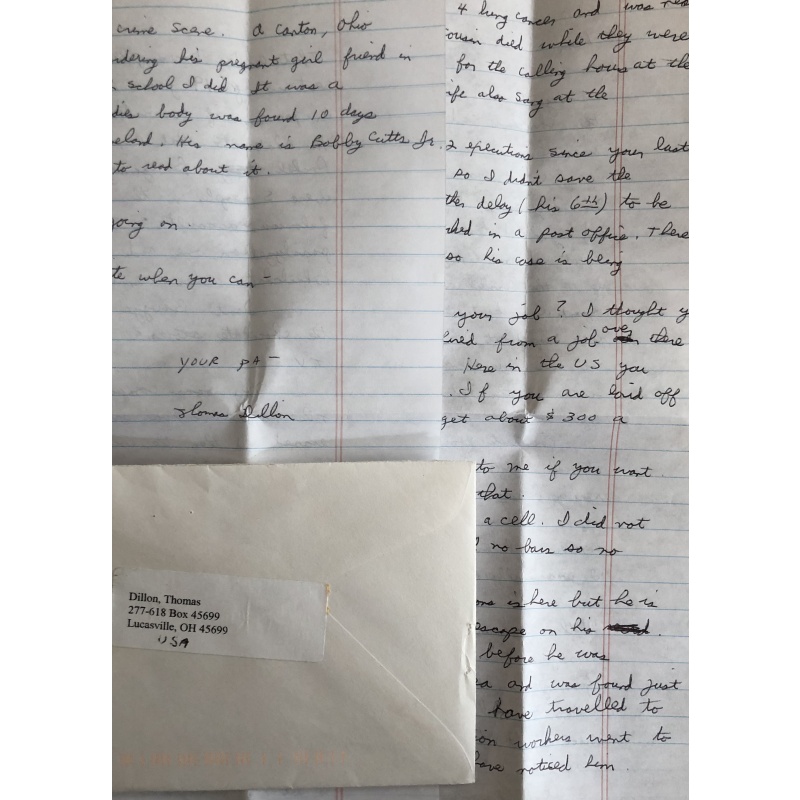 crime scene. A Canton, Ohio
pregnant girl friend in
school I did. It was a
body was found 10 days
His name is Bobby Cutts Jr.
to read about it.
going on.
when you can -
YOUR PA -
Thomas Dillon
Dillon, Thomas
277-618 Box 45699
Lucasville, OH 45699
USA
4 lung cancer and was
died while they were
for the calling hours at the
also sang at the
2 executions since your last
so I didn't save the
delay (his 6th) to be
in a post office. There
so his case is being
your job? I thought
from a job over there
Here in the US you
. If you are laid off
get about $300 a
to me if you want
that.
a cell. I did not
no bars so no
is here but he is
escape on his
before he was
and was found just
have travelled to
workers went to
have noticed him.